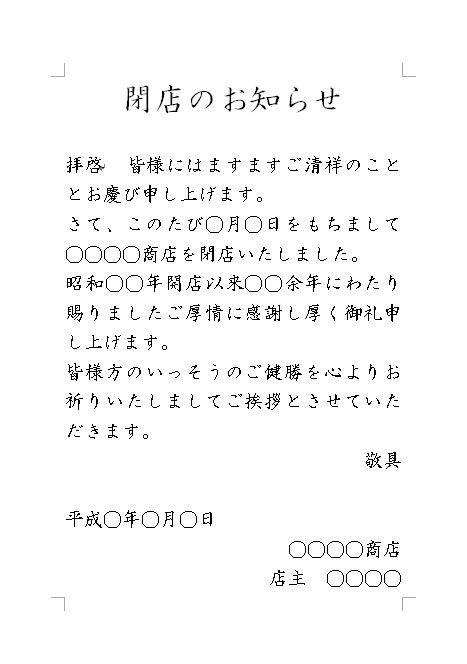 閉店のお知らせ
拝啓　皆様にはますますご清祥のこと
とお慶び申し上げます。
さて、このたび○月○日をもちまして
○○○○商店を閉店いたしました。
昭和○○年開店以来○○余年にわたり
賜りましたご厚情に感謝し厚く御礼申
し上げます。
皆様方のいっそうのご健勝を心よりお
祈りいたしましてご挨拶とさせていた
だきます。
敬具
平成○年○月○日
○○○○商店
店主　○○○○